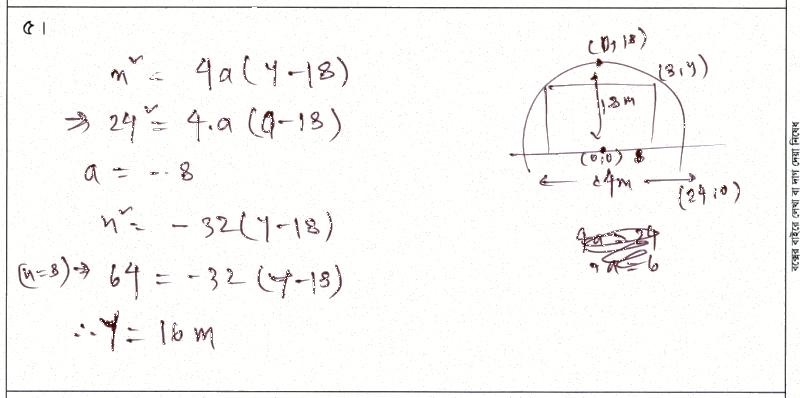 ৫।
x² = 4a(y-18)
⇒ 24² = 4.a(0-18)
a = -8
x² = -32(y-18)
(x=8)⇒ 64 = -32(y-18)
∴ y = 16 m
(0,18)
(8,y)
18m
(0,0) 8
24m
(24,0)
4a = 24
a = 6
বক্সের বাইরে লেখা বা দাগ দেয়া নিষেধ